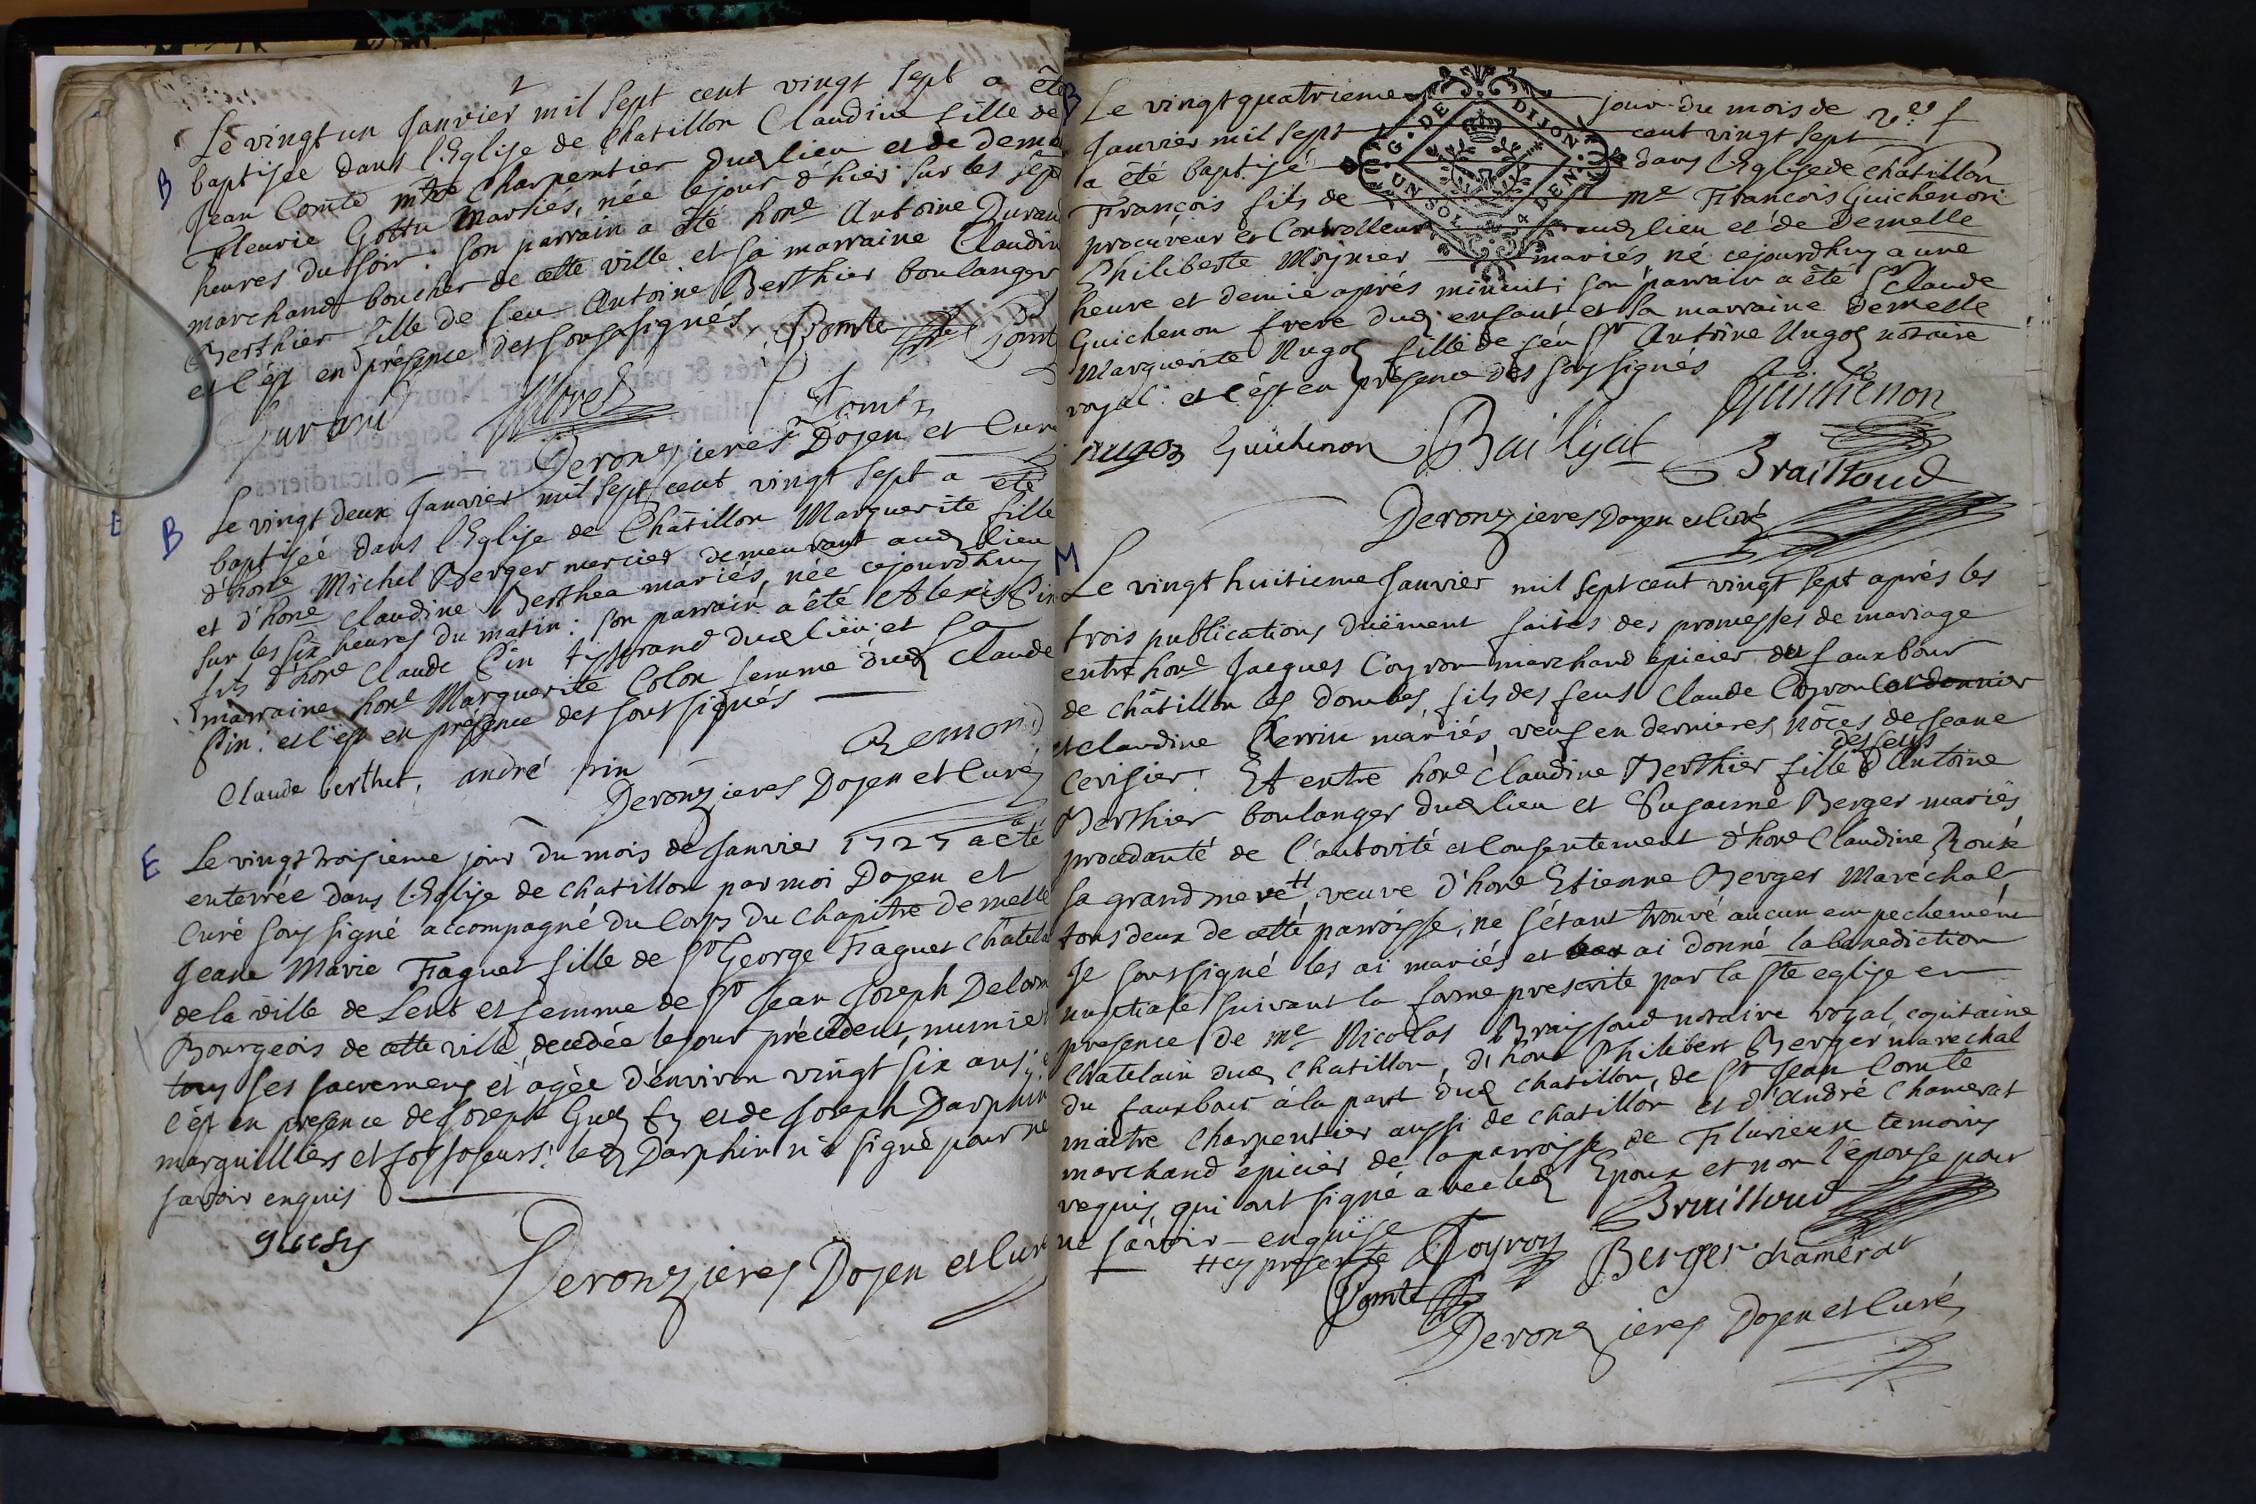 Le vingt un Janvier mil sept cent vingt sept a été
baptisée dans l'Eglise de Chatillon Claudine fille de
B
Jean Comte mtre Charpentier dud lieu et de Dem
Fleurie Gottu mariés, née le jour d'hier sur les sept
heures du soir. Son parrain a été honc Antoine Durand
marchand boucher de cette ville et sa marraine Claudine
Berthier fille de feu Antoine Berthier boulanger
et c'est en présence des soussignés. Comte Comte
Durand Comte
Deronzieres Doyen et Curé
B
Le vingt deux Janvier mil sept cent vingt sept a été
baptisée dans l'Eglise de Châtillon Marguerite fille
d'honc Michel Berger mercier demeurant aud lieu
et d'honc Claudine Berthea mariés, née cejourdhuy
sur les six heures du matin. Son parrain a été Alexis Pin
fils d'honc Claude Pin tysserand dud lieu et sa
marraine honc Marguerite Colon femme dud Claude
Pin. et c'est en présence des soussignés
Remond
Claude berthet, andré pin
Deronzieres Doyen et Curé
E
Le vingt troisieme jour du mois de Janvier 1727 a été
enterrée dans l'Eglise de Chatillon par moi Doyen et
Curé soussigné accompagné du Corps du Chapitre Demelle
Jeane Marie Faguet fille de Sr George Faguet Chatela
de la ville de Lent et femme de Sr Jean Joseph Delorm
Bourgeois de cette ville, decedée le jour précedent, munie
tous ses sacremens et agée d'environ vingt six ans;
c'est en presence de Joseph Gued fy et de Joseph Darphin
marguilliers et fossoyeurs; led Darphin n'a signé pour ne
savoir enquis
guesy
Deronzieres Doyen et Curé
B
Le vingtquatrieme jour du mois de
Janvier mil sept cent vingt sept
a été baptisé dans l'Eglise de Chatillon
François fils de Me François Guichenon
procureur et Controlleur aud lieu et de Demelle
Philiberte Moynier mariés né cejourdhuy a une
heure et demie aprés minuit; son parrain a été Sr Claude
Guichenon frere dud enfant et sa marraine Demelle
Marguerite Nugoz fille de feu Sr Antoine Nugoz notaire
royal. et c'est en présence des soussignés
G. DE DIJON
UN SOL 4 DEN.
Guichenon
nugoz Guichenon Baillyat
Braissoud
Deronzieres Doyen et Curé
M
Le vingt huitieme Janvier mil sept cent vingt sept aprés les
trois publications duëment faites des promesses de mariage
entre honc Jacques Coyron marchand épicier du fauxbour
de châtillon les Dombes, fils des feus Claude Coyron Cordonnier
et claudine Perrin mariés, veuf en dernieres nôces de Jeane
Cerisier. Et entre honc Claudine Berthier fille des feus d'Antoine
Berthier boulanger dud lieu et Susanne Berger mariés
procedante de l'autorité et consentement d'honc Claudine Roux
sa grand mere ++, veuve d'honc Etienne Berger Maréchal
tous deux de cette parroisse, ne s'étant trouvé aucun empechement
Je soussigné les ai mariés et ai donné la benediction
nuptiale suivant la forme prescrite par la Ste eglise en
presence de me Nicolas Braissoud notaire royal capitaine
Chatelain dud Chatillon, d'honc Philibert Berger maréchal
du fauxbour à la part dud chatillon, de Sr Jean Comte
maitre Charpentier aussi de chatillon et d'André Chamerat
marchand épicier de la parroisse de Flurieux temoins
requis, qui ont signé avec led Epoux et non l'épouse pour
ne savoir enquise
++ cy presente Coyron Braissoud
Comte Berger chamerat
Deronzieres Doyen et Curé